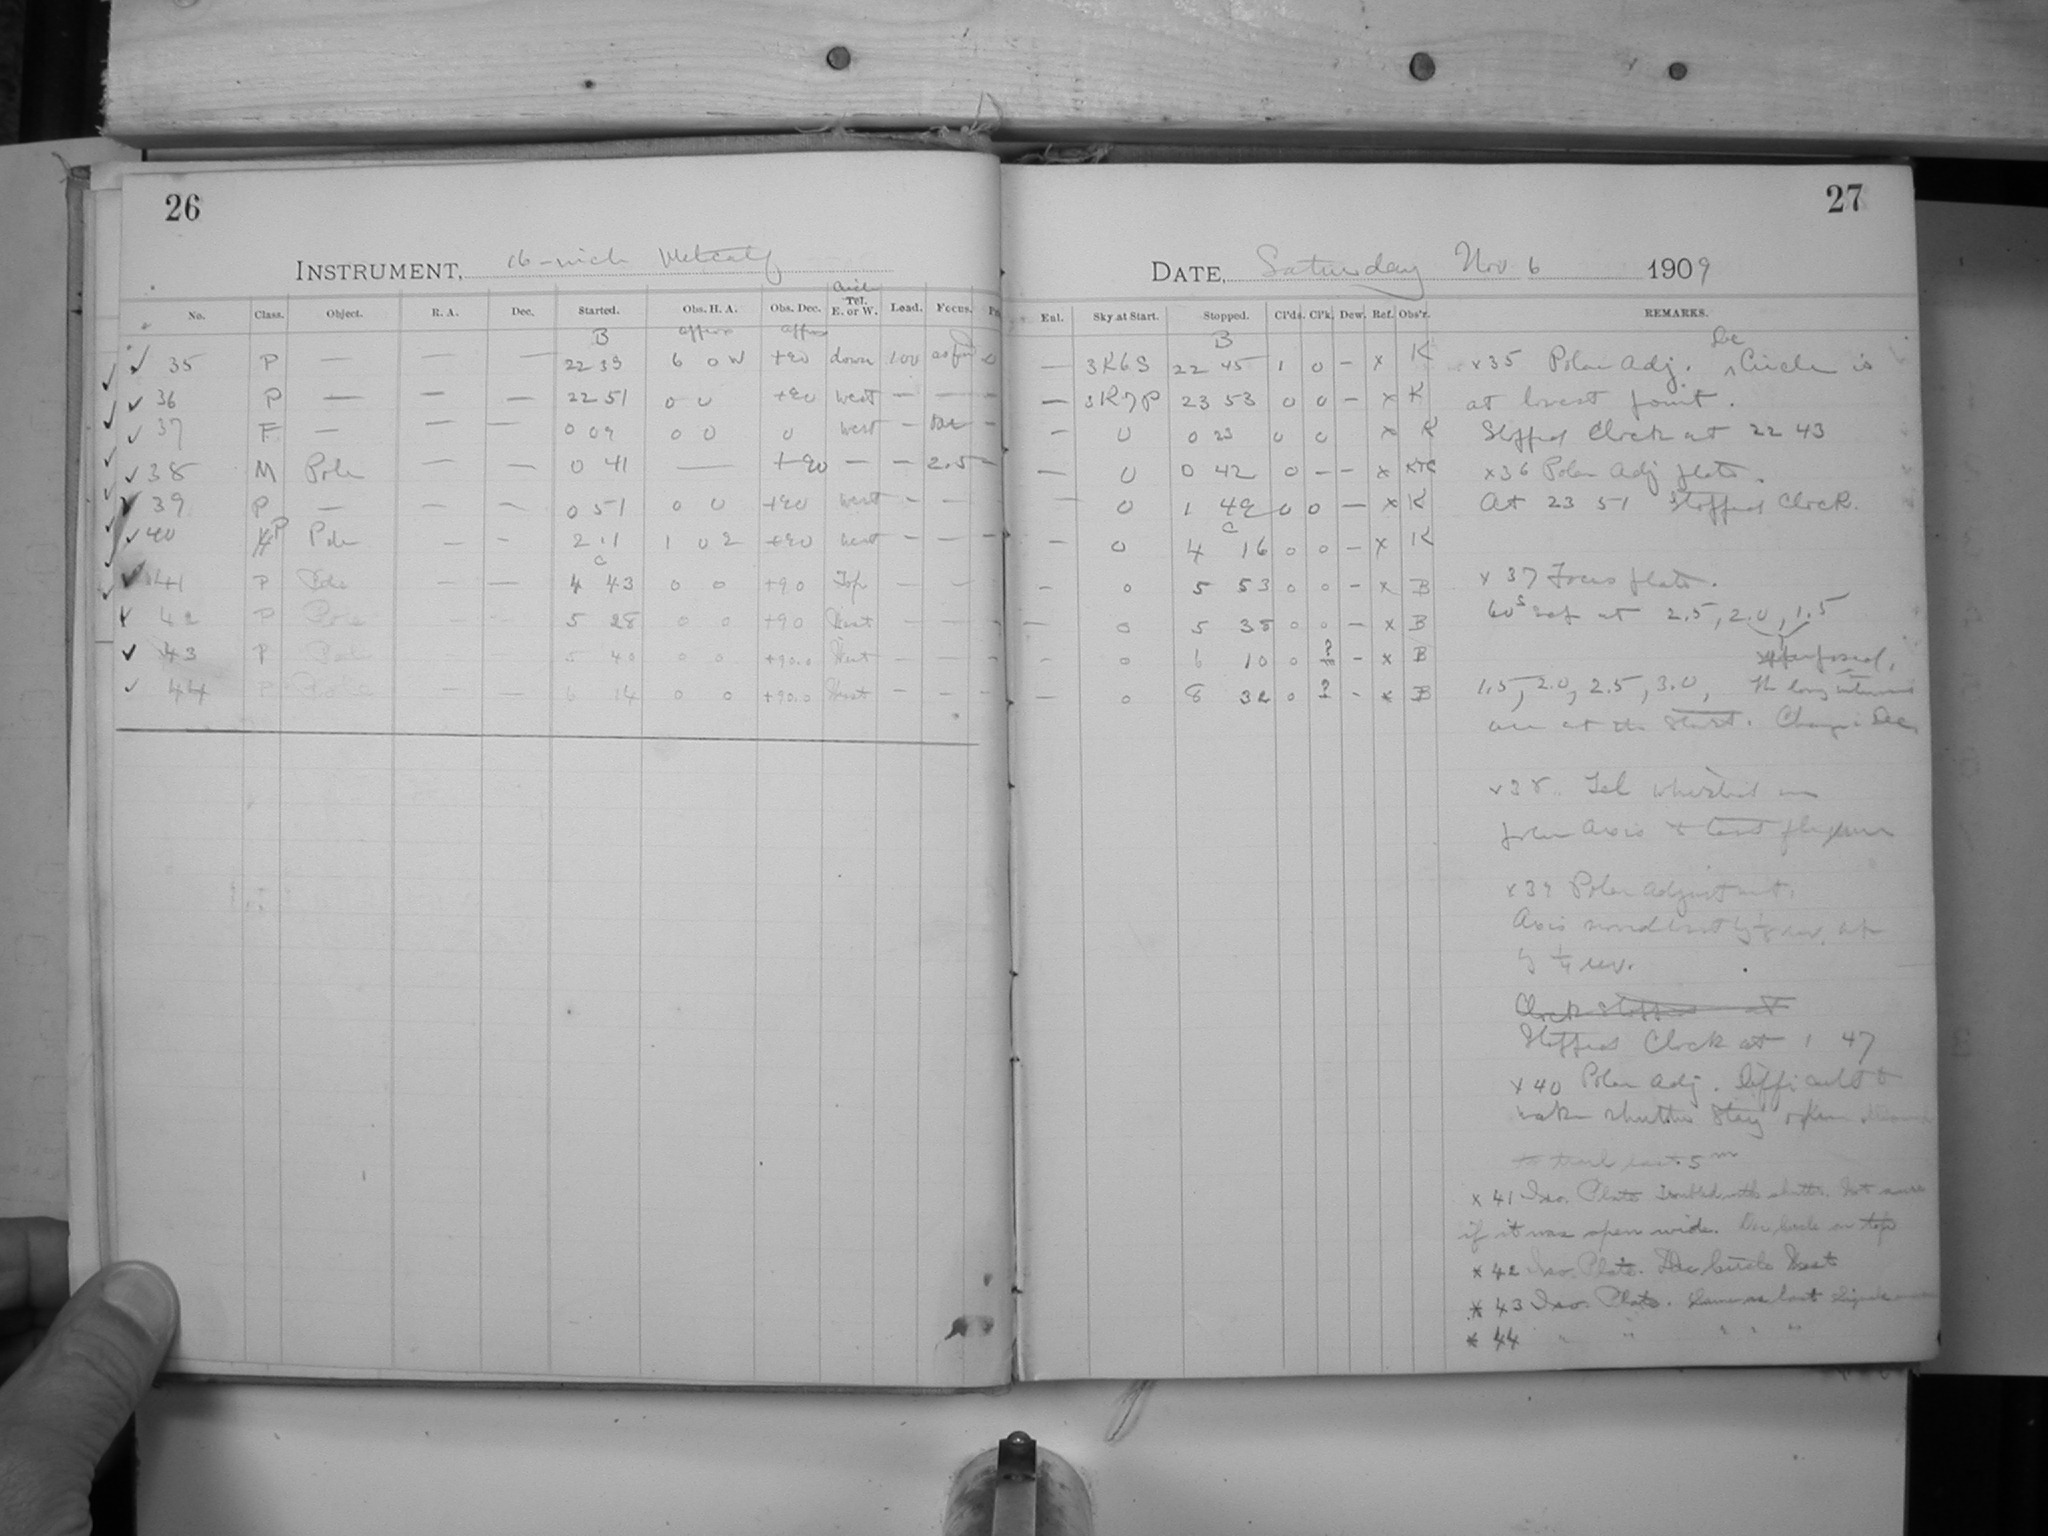 26
INSTRUMENT, 16-inch Metcalf
Circle
No. Class. Object. R. A. Dec. Started. Obs. H. A. Obs. Dec. Tel. E. or W. Load. Focus.
B approx approx
35 P — — — 22 39 6 0 W +90 down 100
36 P — — — 22 51 0 0 +90 west — —
37 F — — — 0 09 0 0 0 west —
38 M Pole — — 0 41 — +90 — — 2.5
39 P — — — 0 51 0 0 +90 west — —
40 P Pole — — 2 11 1 0 E +90 west — —
C
41 P Pole — — 4 43 0 0 +90 Top — —
42 P Pole — — 5 28 0 0 +90 West — —
43 P Pole — — 5 40 0 0 +90.0 West — —
44 P Pole — — 6 14 0 0 +90.0 West — —
27
DATE, Saturday Nov 6 1909
Enl. Sky at Start. Stopped. Cl'ds. Cl'k. Dew. Ref. Obs'r. REMARKS.
B
— 22 45 1 0 — x K
— 23 53 0 0 — x K
— 0 0 23 0 0 x K
— 0 0 42 0 — — x
— 0 1 48 0 0 — x K
C
— 0 4 16 0 0 — x K
— 0 5 53 0 0 — x B
— 0 5 38 0 0 — x B
— 0 6 10 0 ? — x B
— 0 8 32 0 ? - x B
x35 Polar Adj. Dec Circle is
at lowest point.
Stopped Clock at 22 43
x36 Polar Adj plate.
At 23 51 Stopped Clock.
x 37 Focus plate.
60s at 2.5, 2.0, 1.5
superposed,
1.5, 2.0, 2.5, 3.0, The long
are at the start. Change Dec
x38. Tel
polar axis to test flexure
x39 Polar Adjustment.
Axis moved west by 1/8 rev. up
by 1/4 rev.
Clock stopped at
Stopped Clock at 1 47
x40 Polar Adj. Difficult to
make shutter stay open
to trail last 5m
x 41 Iso. Plate. Troubled with shutter. Not sure
if it was open wide. Dec circle on top
x 42 Iso. Plate. Dec circle West
x 43 Iso. Plate. Same as last
x 44 " " " " "